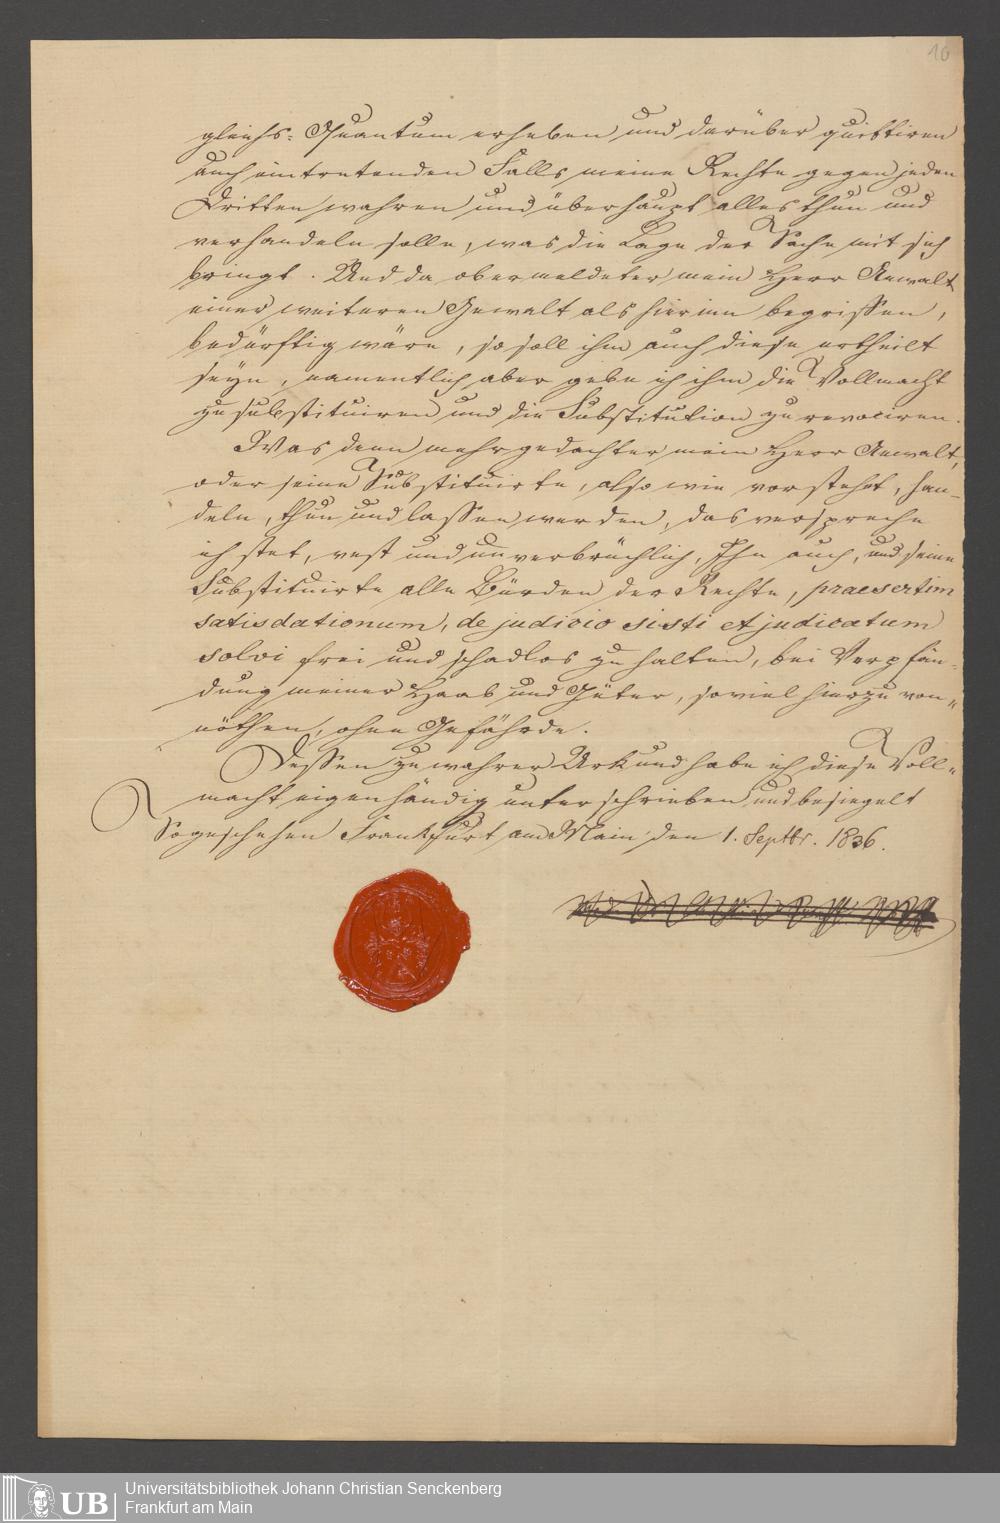 10
gleichs-Quantum erheben und darüber quittiren
auch eintretenden Falls meine Rechte gegen jeden
Dritten wahren und überhaupt alles thun und
verhandeln solle, was die Lage der Sache mit sich
bringt. Und da obermeldeter mein Herr Anwalt
einer weiteren Gewalt als hierinn begriffen,
bedürftig wäre, so soll ihm auch diese ertheilt
seyn, namentlich aber gebe ich ihm die Vollmacht
zu substituiren und die Substitution zu revociren.
Was denn mehrgedachter mein Herr Anwalt,
oder seine Substituirte, also wie vorsteht, han-
deln, thun und lassen werden, das verspreche
ich stet, vest und unverbrüchlich, Ihn auch, und seine
Substituirte alle Bürden der Rechte, praesertim
satisdationum, de judicio sisti et judicatum
solvi frei und schadlos zu halten, bei Verpfän-
dung meiner Haab und Güter, soviel hierzu von-
nöthen, ohne Gefährde.
Dessen zu wahrer Urkund habe ich diese Voll-
macht eigenhändig unterschrieben und besiegelt
So geschehen Frankfurt am Main den 1. Septbr. 1836.
Universitätsbibliothek Johann Christian Senckenberg
Frankfurt am Main
UB